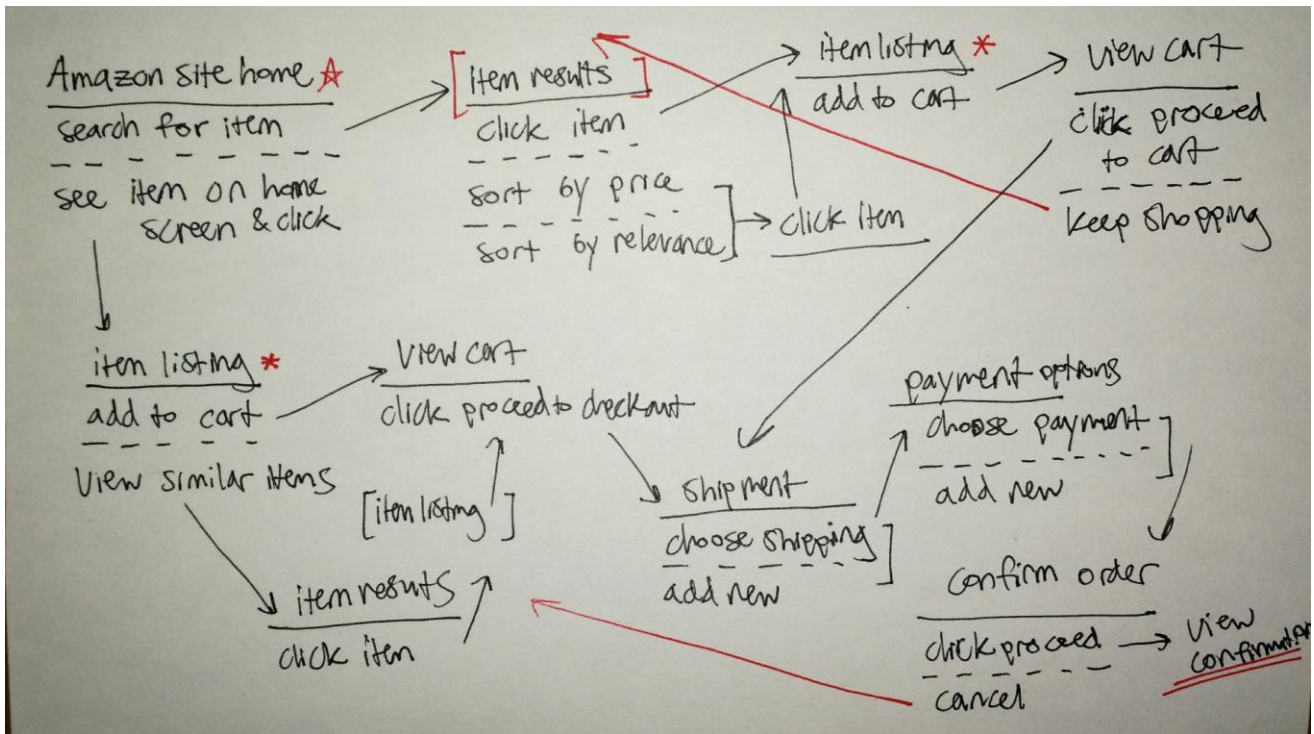 Amazon site home
search for item
see item on home
screen & click
[item results]
click item
sort by price
sort by relevance
click item
item listing *
add to cart
view cart
click proceed
to cart
keep shopping
item listing *
add to cart
view similar items
view cart
click proceed to checkout
[item listing]
item results
click item
shipment
choose shipping
add new
payment options
choose payment
add new
confirm order
click proceed
cancel
view